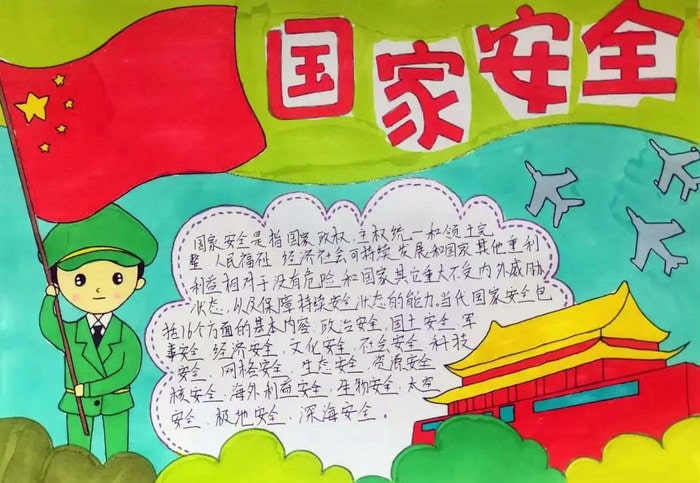 国家安全
国家安全是指国家政权、主权、统一和领土完
整、人民福祉、经济社会可持续发展和国家其他重大利
益相对于没有危险和国家其它重大不受内外威胁
状态,以及保障持续安全状态的能力。当代国家安全包
括16个方面的基本内容:政治安全、国土安全、军
事安全、经济安全、文化安全、社会安全、科技
安全、网络安全、生态安全、资源安全、
核安全、海外利益安全、生物安全、太空
安全、极地安全、深海安全。